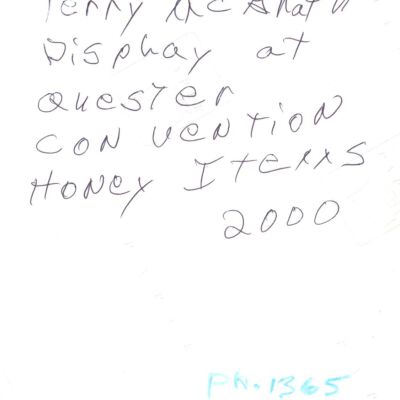 Display at
Quester
Convention
Honey Items
2000
PN.1365